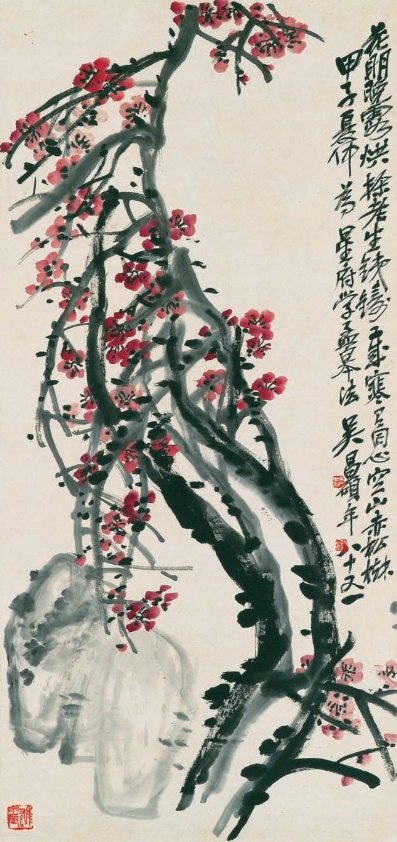 花明晚露烘榦老生鐵鑄歲寒有同心空山赤松樹
甲子夏仲為星府學孟皋法吳昌碩年八十又一